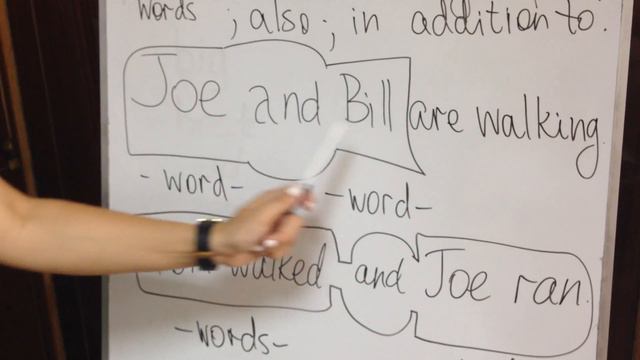 words ; also ; in addition to.
Joe and Bill are walking.
-word- -word-
walked and Joe ran.
-words-